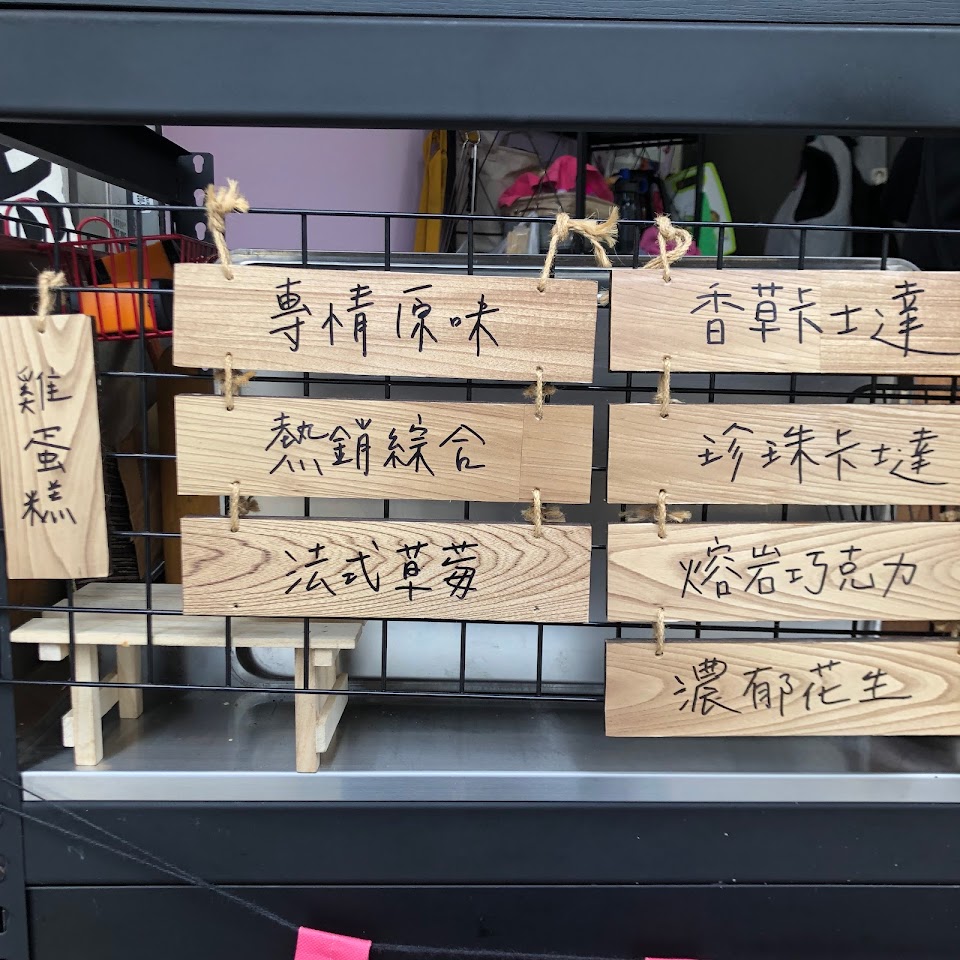 雞蛋糕
專情原味
熱銷綜合
法式草莓
香草卡士達
珍珠卡士達
熔岩巧克力
濃郁花生